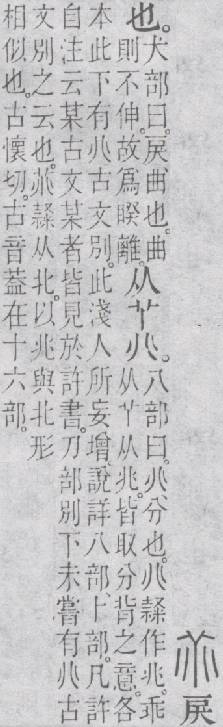 𦮃戾
也。犬部曰。戾、曲也。曲
則不伸。故爲睽離。
从𦫳𠔁。八部曰。𠔁、分也。𠔁隷作兆。乖
从𦫳从兆。皆取分背之意。各
本此下有𠔁古文別。此淺人所妄增。說詳八部、卜部。凡許
自注云某古文某者皆見於許書。刀部別下未嘗有𠔁古
文別之云也。𦮃隷从北。以兆與北形
相似也。古懷切。古音葢在十六部。